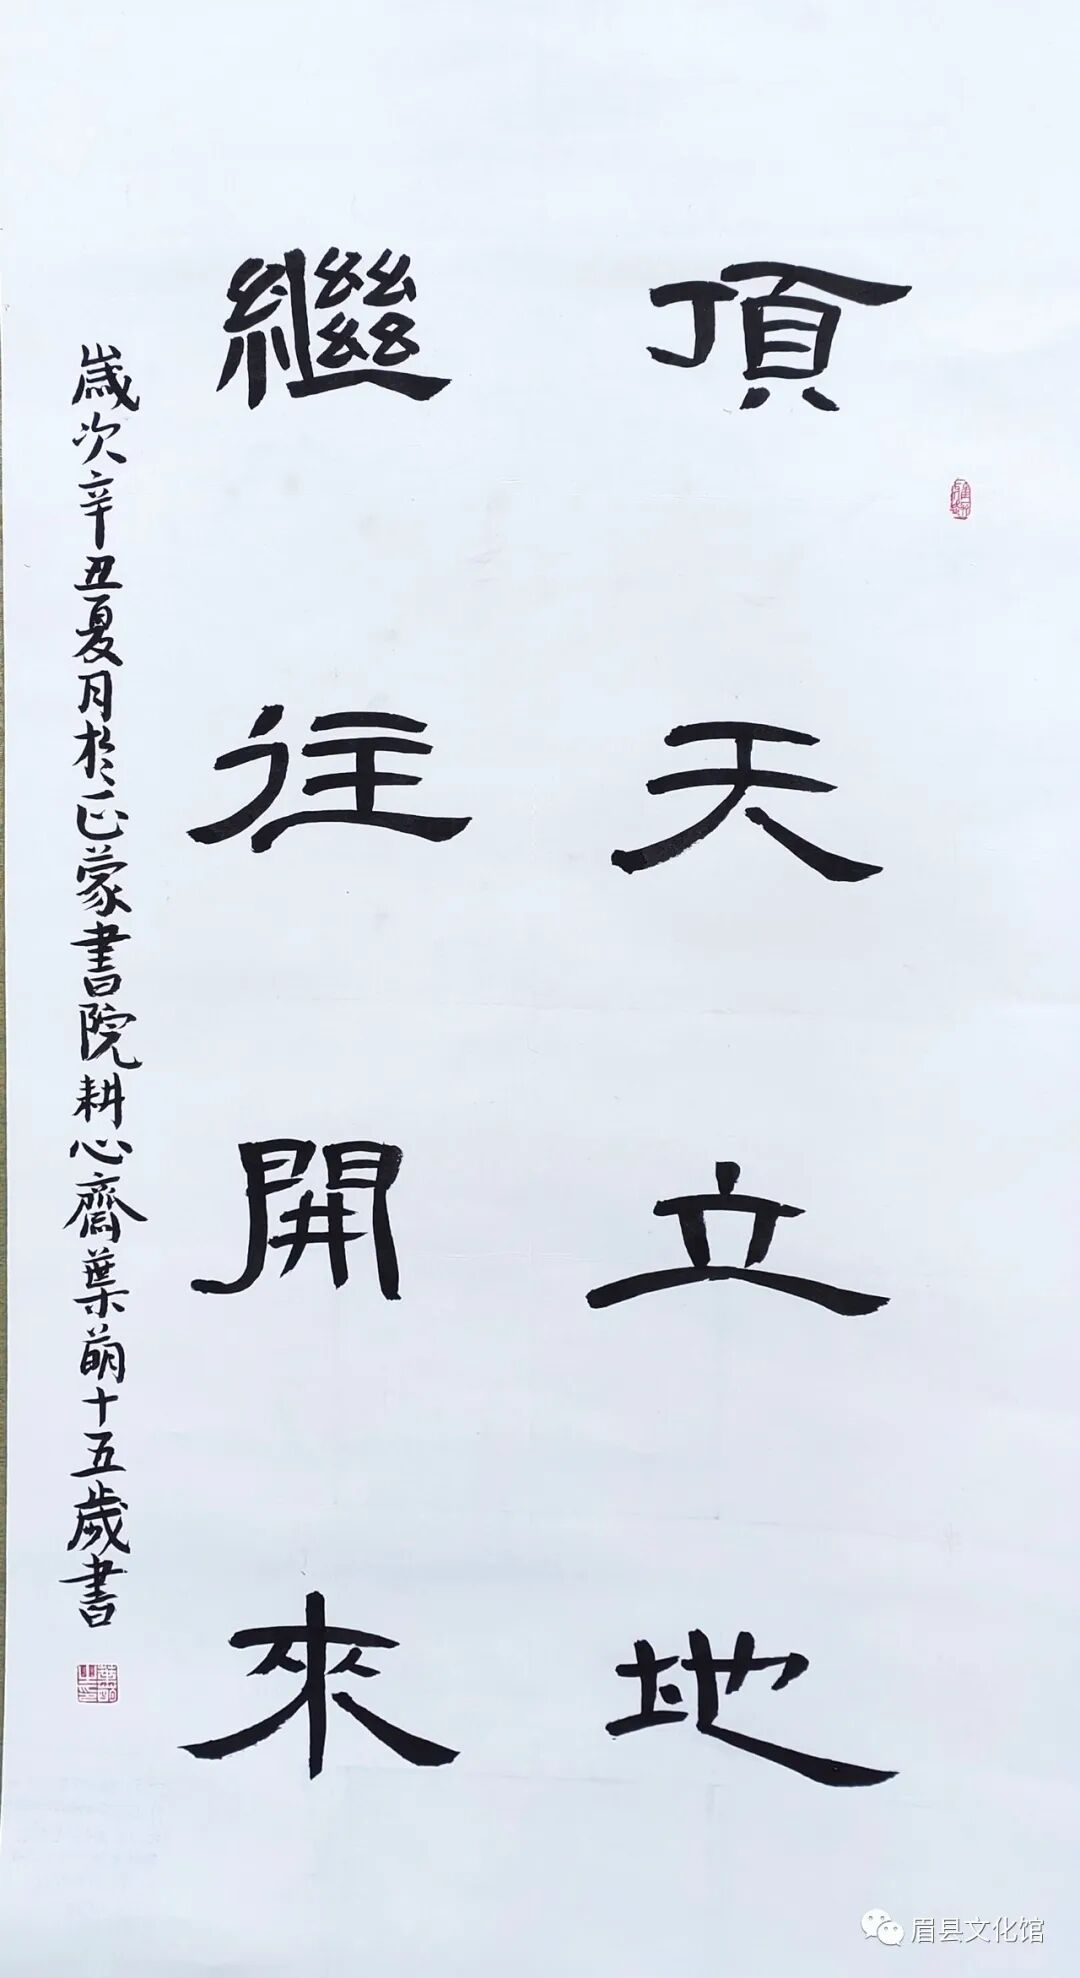 頂天立地
繼往開來
歲次辛丑夏月於正蒙書院耕心齋葉萌十五歲書
眉县文化馆